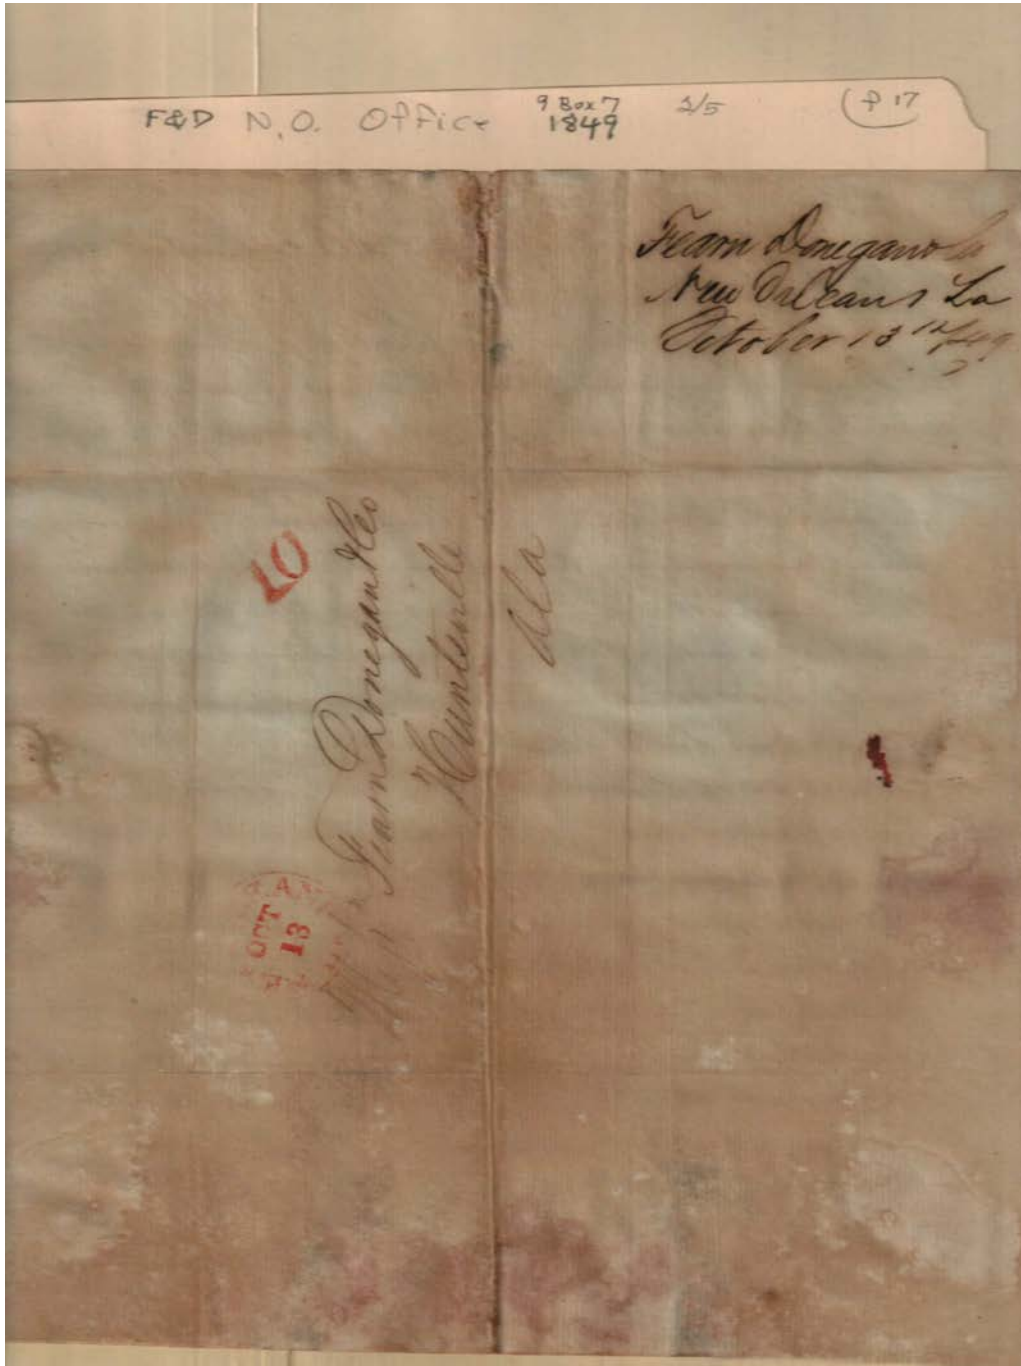 F&D N.O. Office 9 Box 7 2/5 P 17
1849
Fearn Donegan & Co
New Orleans La
October 13 1849
10
Mess Fearn Donegan & Co
Huntsville
Ala
OCT
13